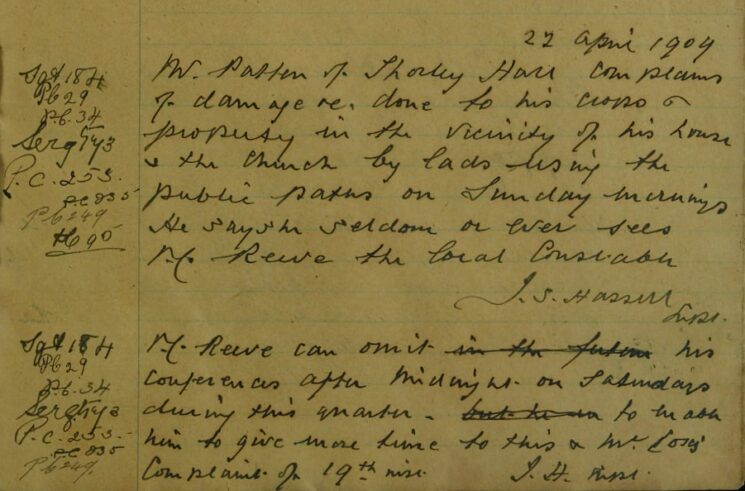 22 April 1909
Mr. Patten of Thorley Hall complains
of damage &c. done to his crops &
property in the vicinity of his house
& the Church by lads using the
public paths on Sunday mornings
He says he seldom or ever sees
P.C. Reeve the local Constable
J. S. Hassell
Inspr.
Sgt 184
Pc 29
Pc. 34
P.C. 253.
PC 835
Pc 249
P.C. Reeve can omit in the future his
conferences after Midnight on Saturdays
during this quarter. but he to enable
him to give more time to this & Mr
Complaint of 19th inst. J. H. Inspr.
Sgt 184
Pc 29
Pc. 34
P.C. 253.
PC 835
Pc 249.